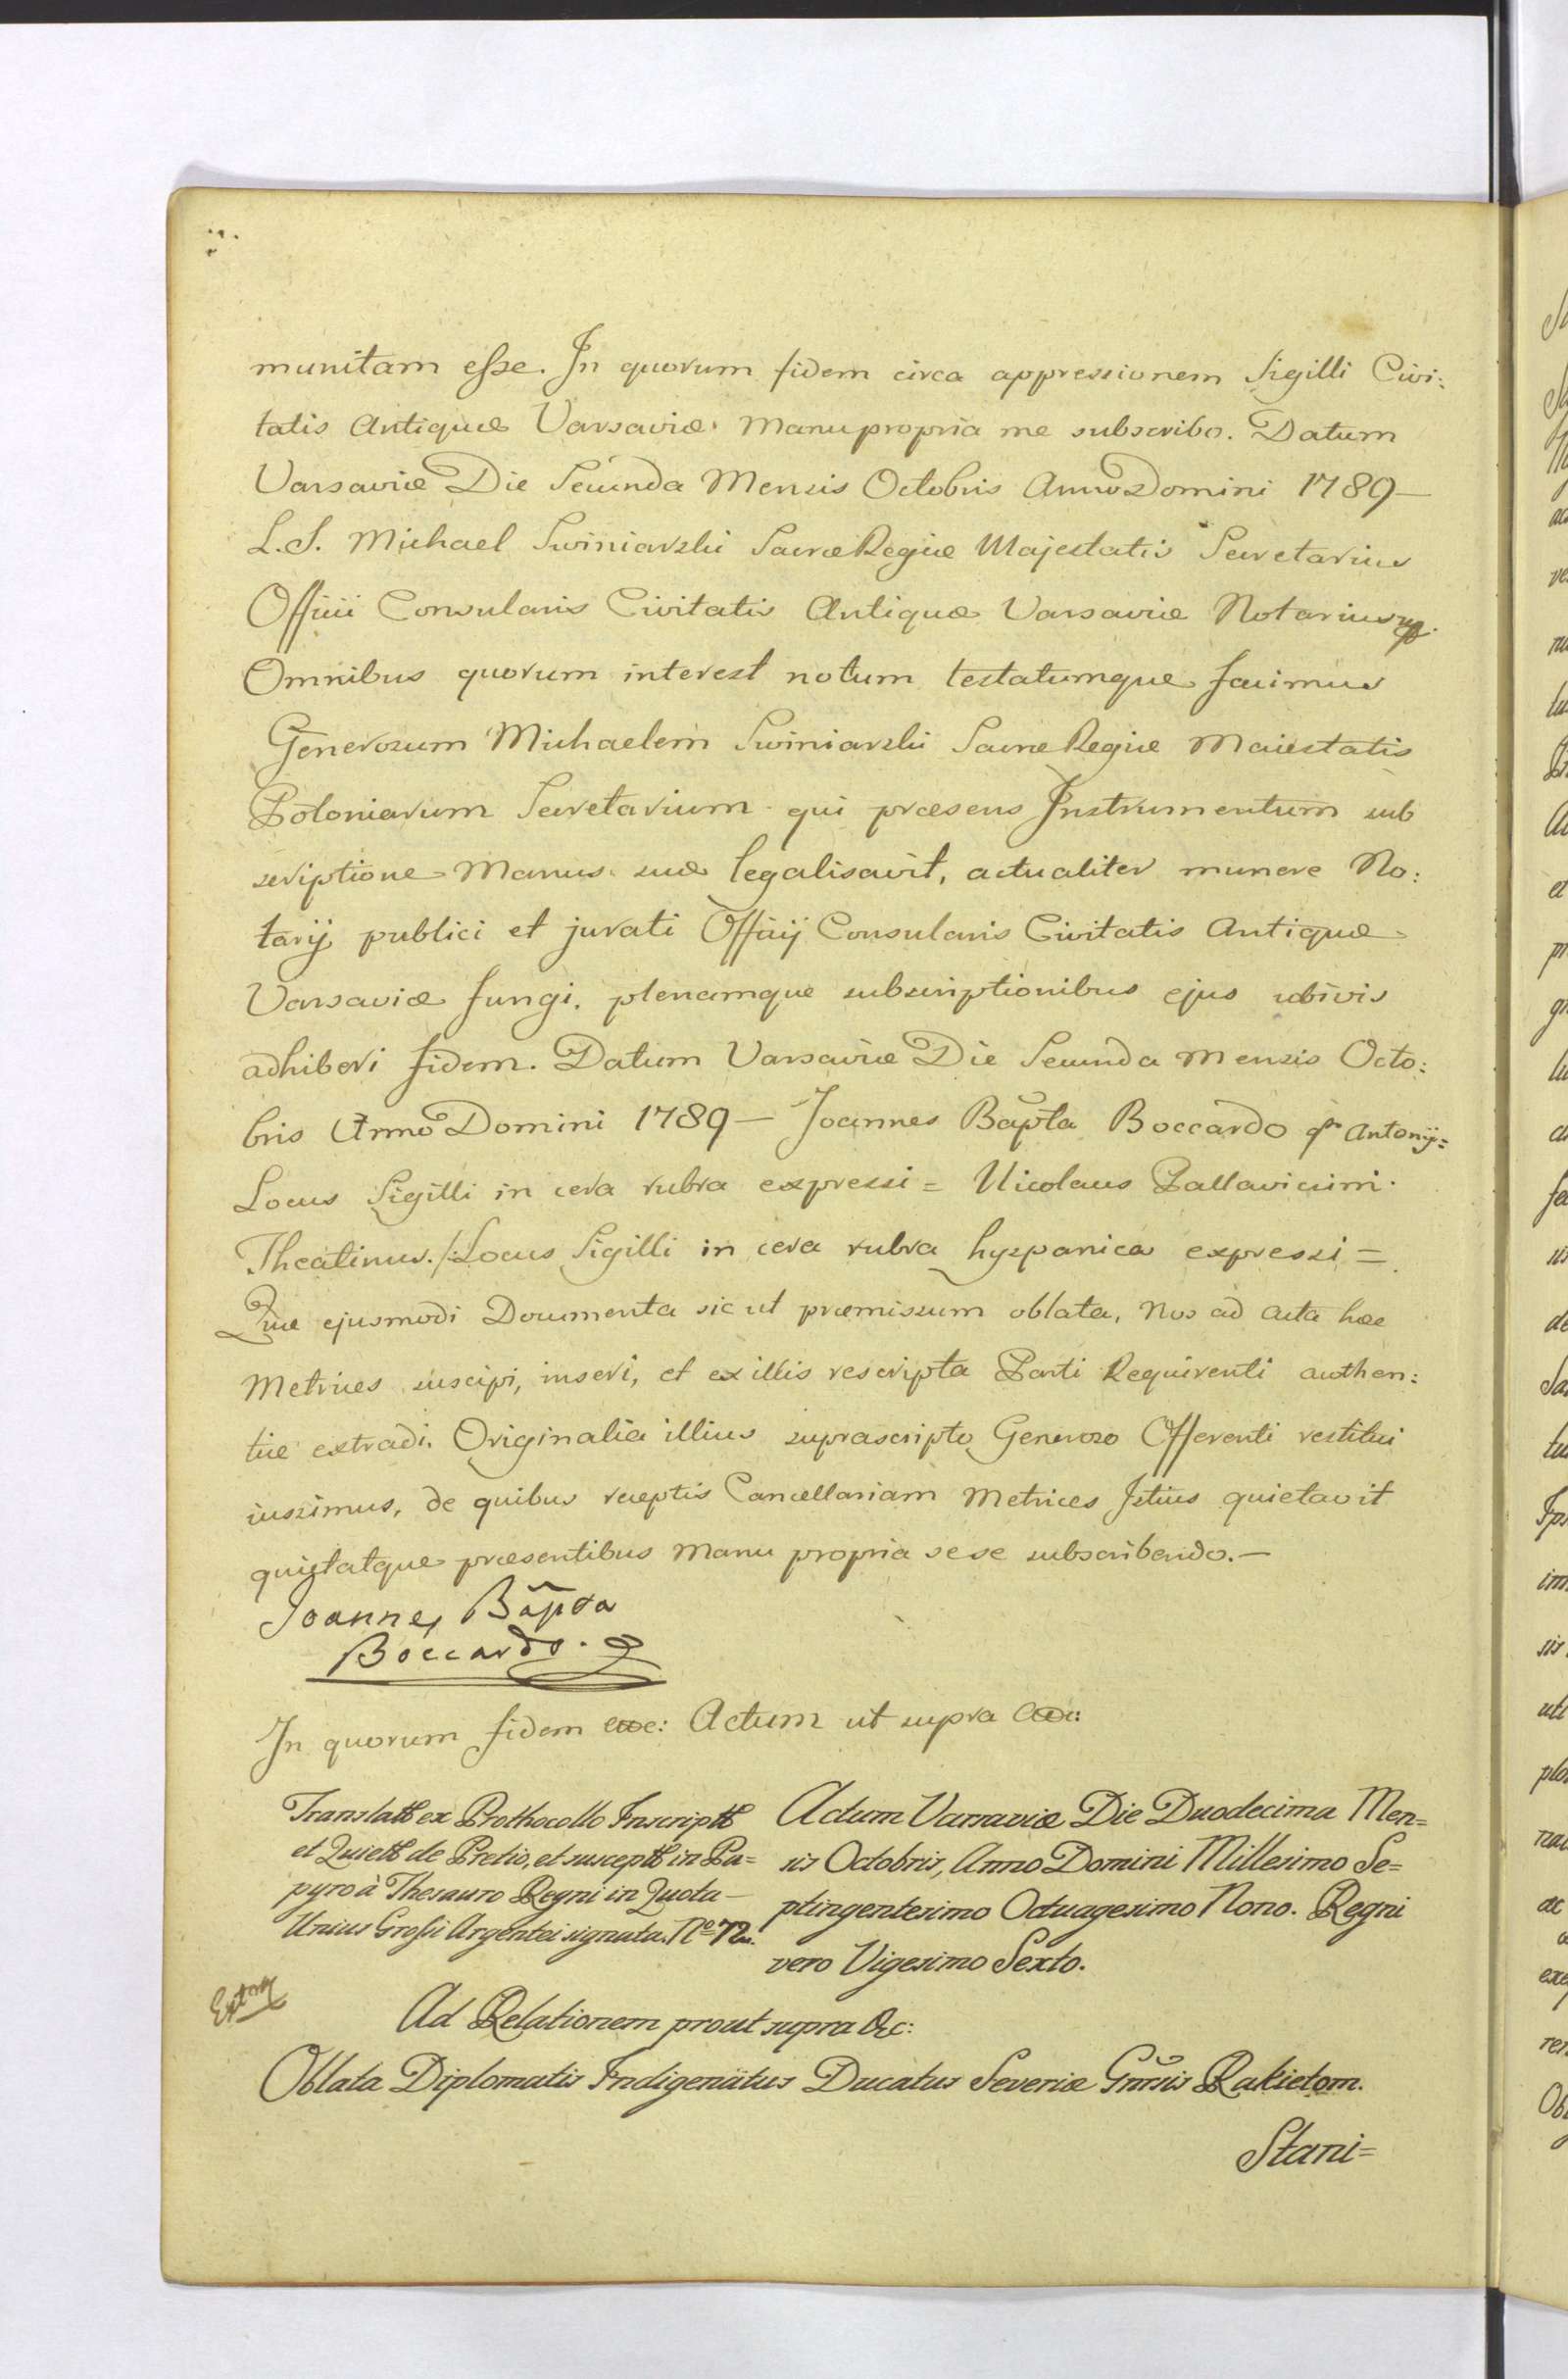 munitam esse. In quorum fidem circa appressionem Sigilli Civi:
tatis Antiquæ Varsaviæ Manu propria me subscribo. Datum
Varsaviæ Die Secunda Mensis Octobris Anno Domini 1789 —
L.S. Michael Swiniarski Sacræ Regiæ Majestatis Secretarius
Officii Consularis Civitatis Antiquæ Varsaviæ Notarius mp.
Omnibus quorum interest notum testatumque facimus
Generosum Michaelem Swiniarski Sacræ Regiæ Maiestatis
Poloniarum Secretarium qui præsens Instrumentum sub
scriptione Manus suæ legalisavit, actualiter munere No:
tarij publici et jurati Officij Consularis Civitatis Antiquæ
Varsaviæ fungi, plenamque subscriptionibus ejus ubivis
adhiberi fidem. Datum Varsaviæ Die Secunda Mensis Octo:
bris Anno Domini 1789 — Joannes Bapta Boccardo qm Antonij =
Locus Sigilli in cera rubra expressi = Nicolaus Pallavicini
Theatinus. /: Locus Sigilli in cera rubra hyspanica expressi =
Quæ ejusmodi Documenta sic ut præmissum oblata, Nos ad Acta hæc
Metrices suscipi, inseri, et ex illis rescripta Parti Requirenti authen:
tice extradi. Originalia illius suprascripto Generoso Offerenti restitui
iussimus, de quibus receptis Cancellariam Metrices Istius quietavit
quietatque præsentibus Manu propria sese subscribendo. —
Joannes Bapta
Boccardo.
In quorum fidem etc: Actum ut supra etc:
Translatt ex Prothocollo Inscriptt
et Quiett de Pretio, et susceptt in Pa=
pyro à Thesauro Regni in Quota —
Unius Grossi Argentei signata. No 72.
Actum Varsaviæ Die Duodecima Men=
sis Octobris, Anno Domini Millesimo Se=
ptingentesimo Octuagesimo Nono. Regni
vero Vigesimo Sexto.
Ad Relationem prout supra &c:
Oblata Diplomatis Indigenatus Ducatus Severiæ Gnrsis Rakietom.
Stani=